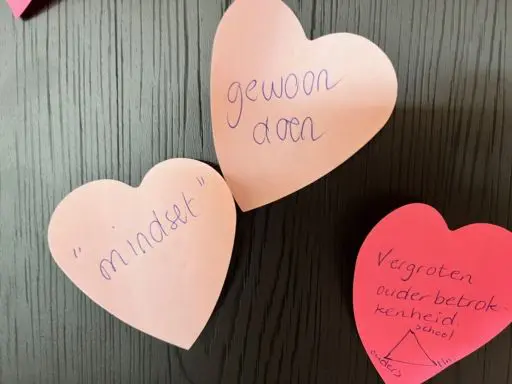 gewoon
doen
"mindset"
Vergroten
ouderbetrok-
kenheid.
school
ouders